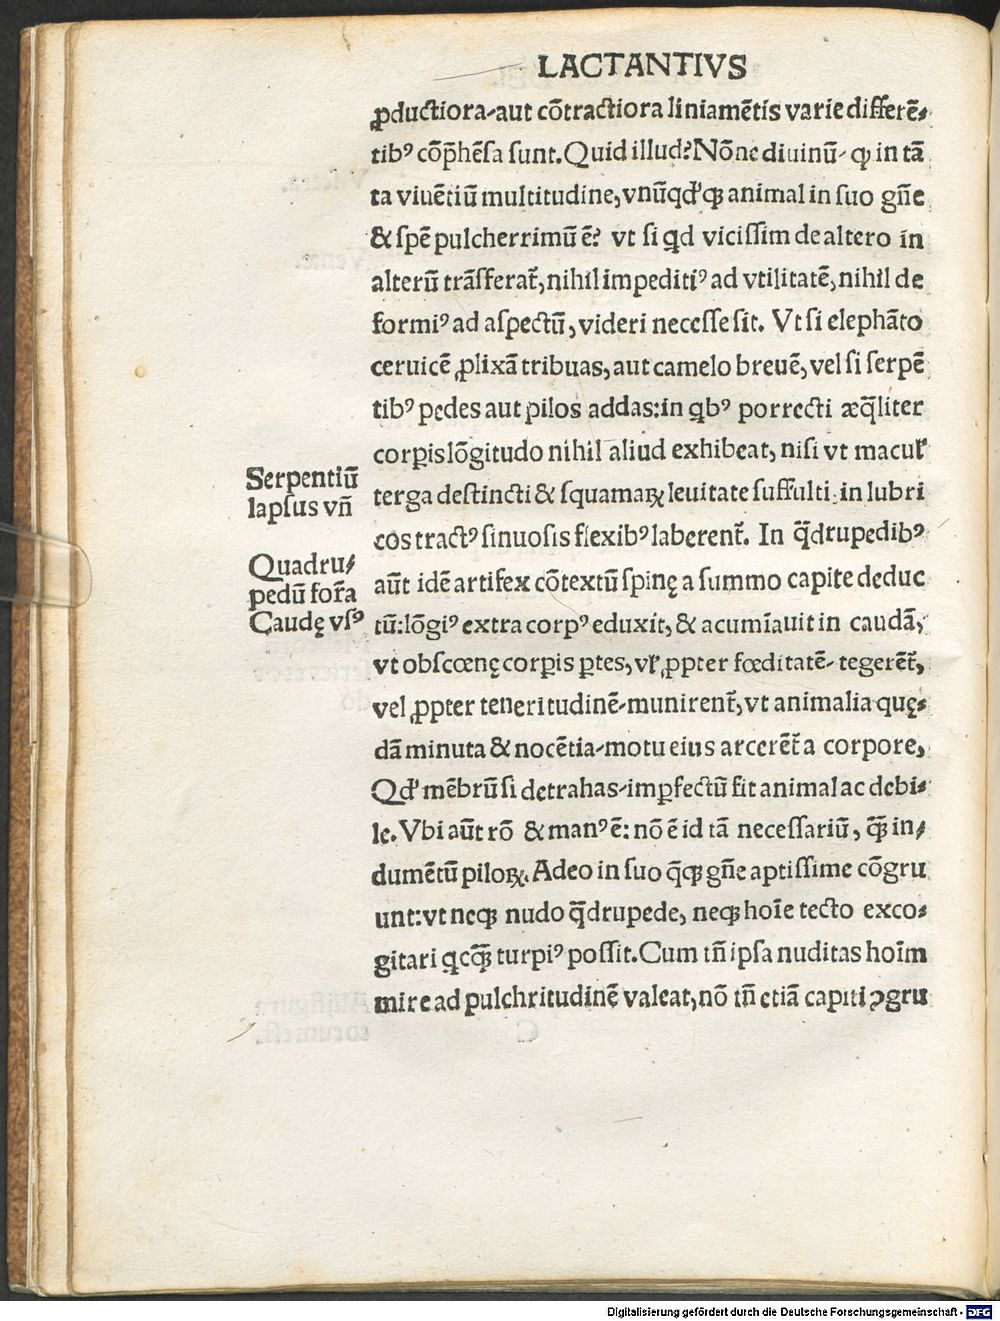 LACTANTIVS
ꝓductiora⸗aut cōtractiora liniamētis varie differē⸗
tibꝰ cōp̄hēsa sunt. Quid illud? Nōne diuinū⸗ ꝙ in tā
ta viuētiū multitudine, vnūqd'qꝫ animal in suo gn̄e
& spē pulcherrimū ē? vt si qd vicissim de altero in
alterū trāsferat̃, nihil impeditiꝰ ad vtilitatē, nihil de
formiꝰ ad aspectū, videri necesse sit. Vt si elephāto
ceruicē ꝓlixā tribuas, aut camelo breuē, vel si serpē
tibꝰ pedes aut pilos addas: in qbꝰ porrecti æq̄liter
corꝑis lōgitudo nihil aliud exhibeat, nisi vt macul'
terga destincti & squamaꝝ leuitate suffulti: in lubri
cos tractꝰ sinuosis flexibꝰ laberent̃. In q̄drupedibꝰ
aūt idē artifex cōtextū spinę a summo capite deduc
tū: lōgiꝰ extra corpꝰ eduxit, & acumīauit in caudā,
vt obscœnę corꝑis ꝑtes, vl' ꝓpter fœditatē⸗ tegerēt̃,
vel ꝓpter teneritudinē⸗munirent̃, vt animalia quę⸗
dā minuta & nocētia⸗motu eius arcerēt̃ a corpore,
Qd' mēbrū si detrahas⸗imꝑfectū fit animal ac debi⸗
le. Vbi aūt rō & manꝰ ē: nō ē id tā necessariū, q̄ꝫ in⸗
dumētū piloꝝ. Adeo in suo q̄qꝫ gn̄e aptissime cōgru
unt: vt neqꝫ nudo q̄drupede, neqꝫ hoīe tecto exco⸗
gitari qcq̄ꝫ turpiꝰ possit. Cum tn̄ ipsa nuditas hoīm
mire ad pulchritudinē valeat, nō tn̄ etiā capiti ꝯgru
Serpentiū
lapsus vn̄
Quadru⸗
pedū for̄a
Caudę vsꝰ
Digitalisierung gefördert durch die Deutsche Forschungsgemeinschaft - DFG